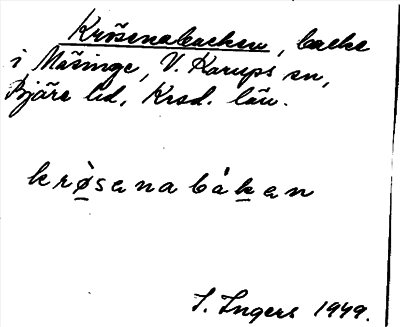 Krösenabacken, backe
i Mäsinge, V. Karups sn,
Bjäre hd, Krsd. län.
krø̀sanabákan
I. Ingers 1949.